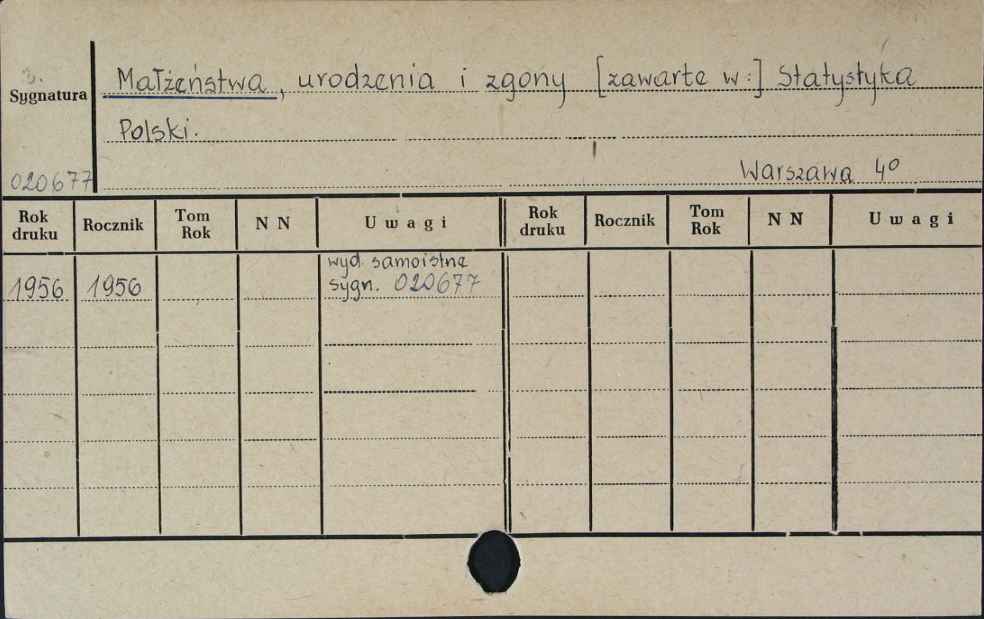 Sygnatura
Małżeństwa, urodzenia i zgony [zawarte w:] Statystyka
Polski.
020677
Warszawa 4º
Rok druku Rocznik Tom Rok N N Uwagi Rok druku Rocznik Tom Rok N N Uwagi
wyd. samoistne
1956 1956 sygn. 020677